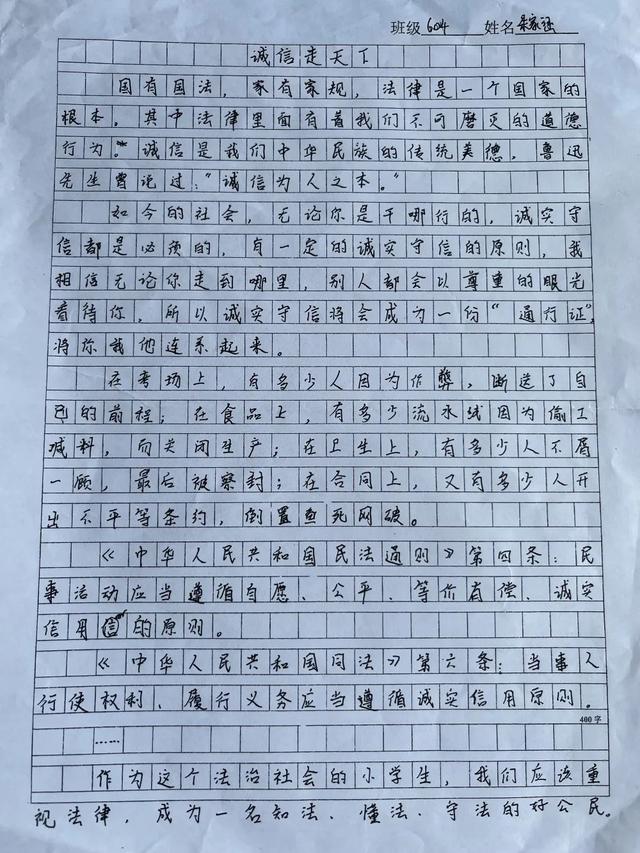 班级 604 姓名
诚信走天下
国有国法，家有家规，法律是一个国家的
根本。其中法律里面有着我们不可磨灭的道德
行为。诚信是我们中华民族的传统美德，鲁迅
先生曾说过：“诚信为人之本。”
如今的社会，无论你是干哪行的，诚实守
信都是必须的，有一定的诚实守信的原则，我
相信无论你走到哪里，别人都会以尊重的眼光
看待你，所以诚实守信将会成为一份“通行证”，
将你我他连系起来。
在考场上，有多少人因为作弊，断送了自
己的前程；在食品上，有多少流水线因为偷工
减料，而关闭生产；在卫生上，有多少人不屑
一顾，最后被察封；在合同上，又有多少人开
出不平等条约，倒置鱼死网破。
《中华人民共和国民法通则》第四条：民
事活动应当遵循自愿、公平、等价有偿、诚实
信用的原则。
《中华人民共和国同法》第六条：当事人
行使权利、履行义务应当遵循诚实信用原则。
400字
……
作为这个法治社会的小学生，我们应该重
视法律，成为一名知法、懂法、守法的好公民。